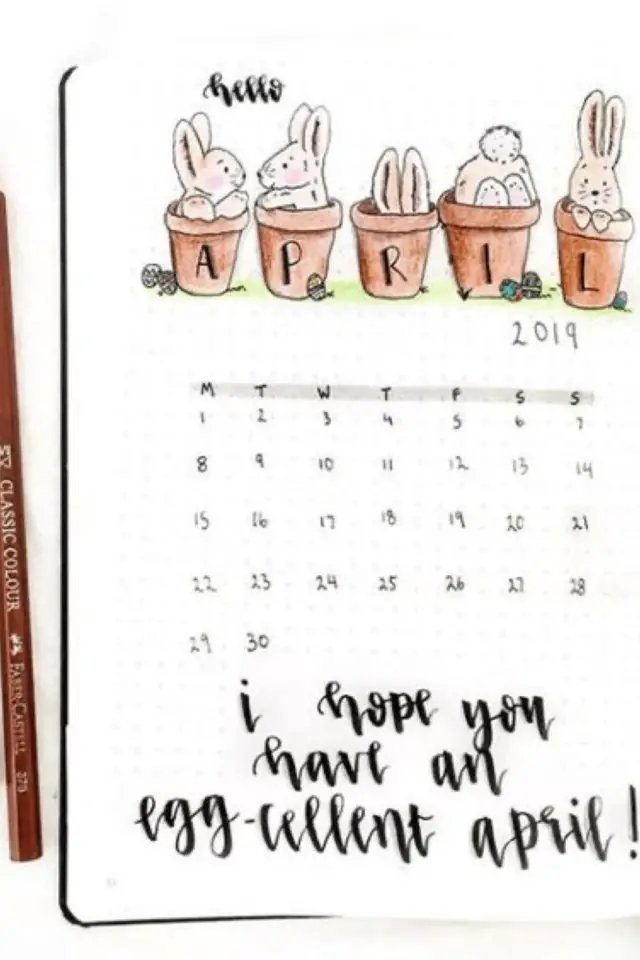 hello
A P R I L
2019
M T W T F S S
1 2 3 4 5 6 7
8 9 10 11 12 13 14
15 16 17 18 19 20 21
22 23 24 25 26 27 28
29 30
i hope you
have an
egg-cellent april!
CLASSIC COLOUR FABER-CASTELL